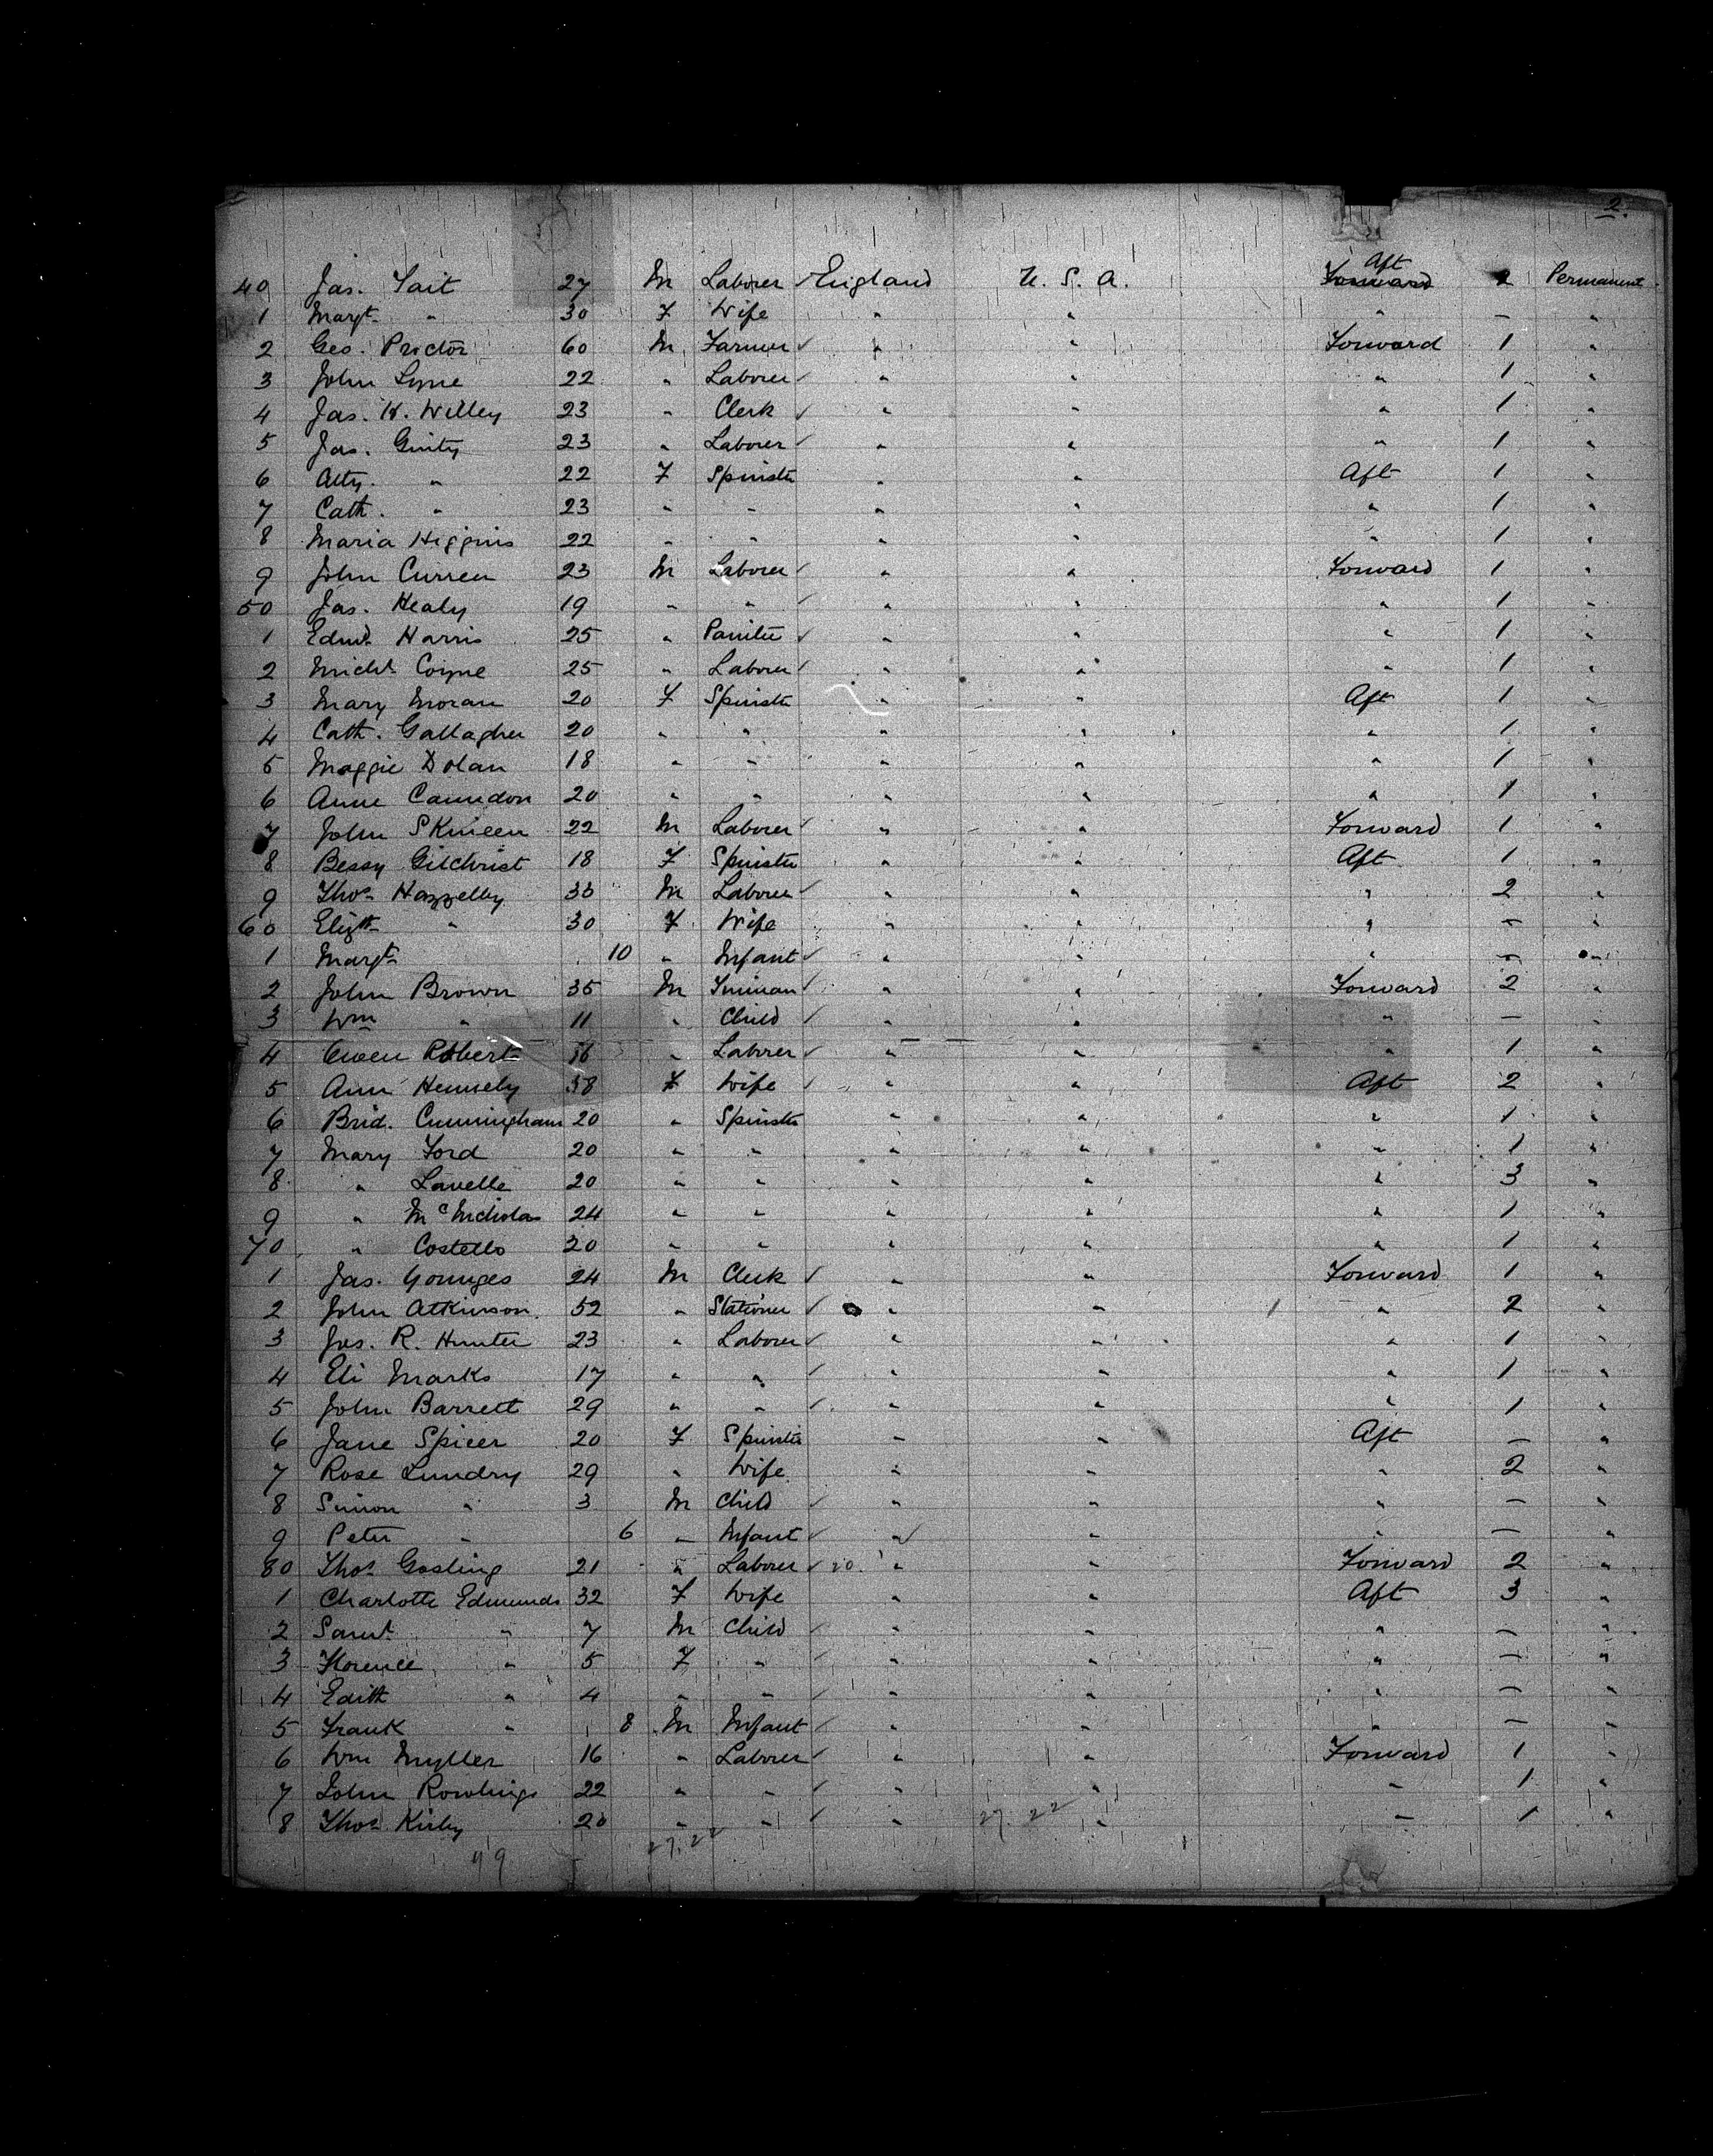 2.
40 Jas. Tait 27 M Laborer ✓ England U. S. A. Aft Forward 2 Permanent
1 Margt " 30 F Wife " " " — "
2 Geo. Proctor 60 M Farmer ✓ " " Forward 1 "
3 John Lyne 22 " Laborer ✓ " " " 1 "
4 Jas. K. Willey 23 " Clerk ✓ " " " 1 "
5 Jas. Ginty 23 " Laborer ✓ " " " 1 "
6 " 22 F Spinster " " Aft 1 "
7 Cath. " 23 " " " " " 1 "
8 Maria Higgins 22 " " " " " 1 "
9 John Curren 23 M Laborer ✓ " " Forward 1 "
50 Jas. Healy 19 " " ✓ " " " 1 "
1 Edwd Harris 25 " Painter ✓ " " " 1 "
2 Michl Coyne 25 " Laborer ✓ " " " 1 "
3 Mary Moran 20 F Spinster " " Aft 1 "
4 Cath. Gallagher 20 " " " " " 1 "
5 Maggie Dolan 18 " " " " " 1 "
6 Anne Caundon 20 " " " " " 1 "
7 John Skineen 22 M Laborer ✓ " " Forward 1 "
8 Bessy Gilchrist 18 F Spinster " " Aft 1 "
9 Thos Hazzelby 33 M Laborer ✓ " " " 2 "
60 Elizth " 30 F Wife " " " — "
1 Margt 10 " Infant ✓ " " " — "
2 John Brown 35 M Tinman ✓ " " Forward 2 "
3 Wm " 11 " Child ✓ " " " — "
4 Owen Roberts " Laborer ✓ " " " 1 "
5 Ann Hennely 38 F Wife " " Aft 2 "
6 Brid. Cunningham 20 " Spinster " " " 1 "
7 Mary Ford 20 " " " " " 1 "
8 " Lavelle 20 " " " " " 3 "
9 " McNicholas 24 " " " " " 1 "
70 " Costello 20 " " " " " 1 "
1 Jas. Gounges 24 M Clerk ✓ " " Forward 1 "
2 John Atkinson 52 " Stationer ✓ " " " 2 "
3 Jas. R. Hunter 23 " Laborer ✓ " " " 1 "
4 Eli Marks 17 " " ✓ " " " 1 "
5 John Barrett 29 " " ✓ " " " 1 "
6 Jane Spicer 20 F Spinster " " Aft — "
7 Rose Lundry 29 " Wife " " " 2 "
8 Simon " 3 M Child ✓ " " " — "
9 Peter " 6 " Infant ✓ " " " — "
80 Thos Gosling 21 " Laborer ✓ " " Forward 2 "
1 Charlotte Edmunds 32 F Wife " " Aft 3 "
2 Saml " 7 M Child ✓ " " " — "
3 Florence " 5 F " ✓ " " " — "
4 Edith " 4 " " ✓ " " " — "
5 Frank " 8 M Infant ✓ " " " — "
6 Wm Myller 16 " Laborer ✓ " " Forward 1 "
7 John Rowlings 22 " " ✓ " " " 1 "
8 Thos Kirby 20 " " ✓ " " " 1 "
27.22
49 27.22